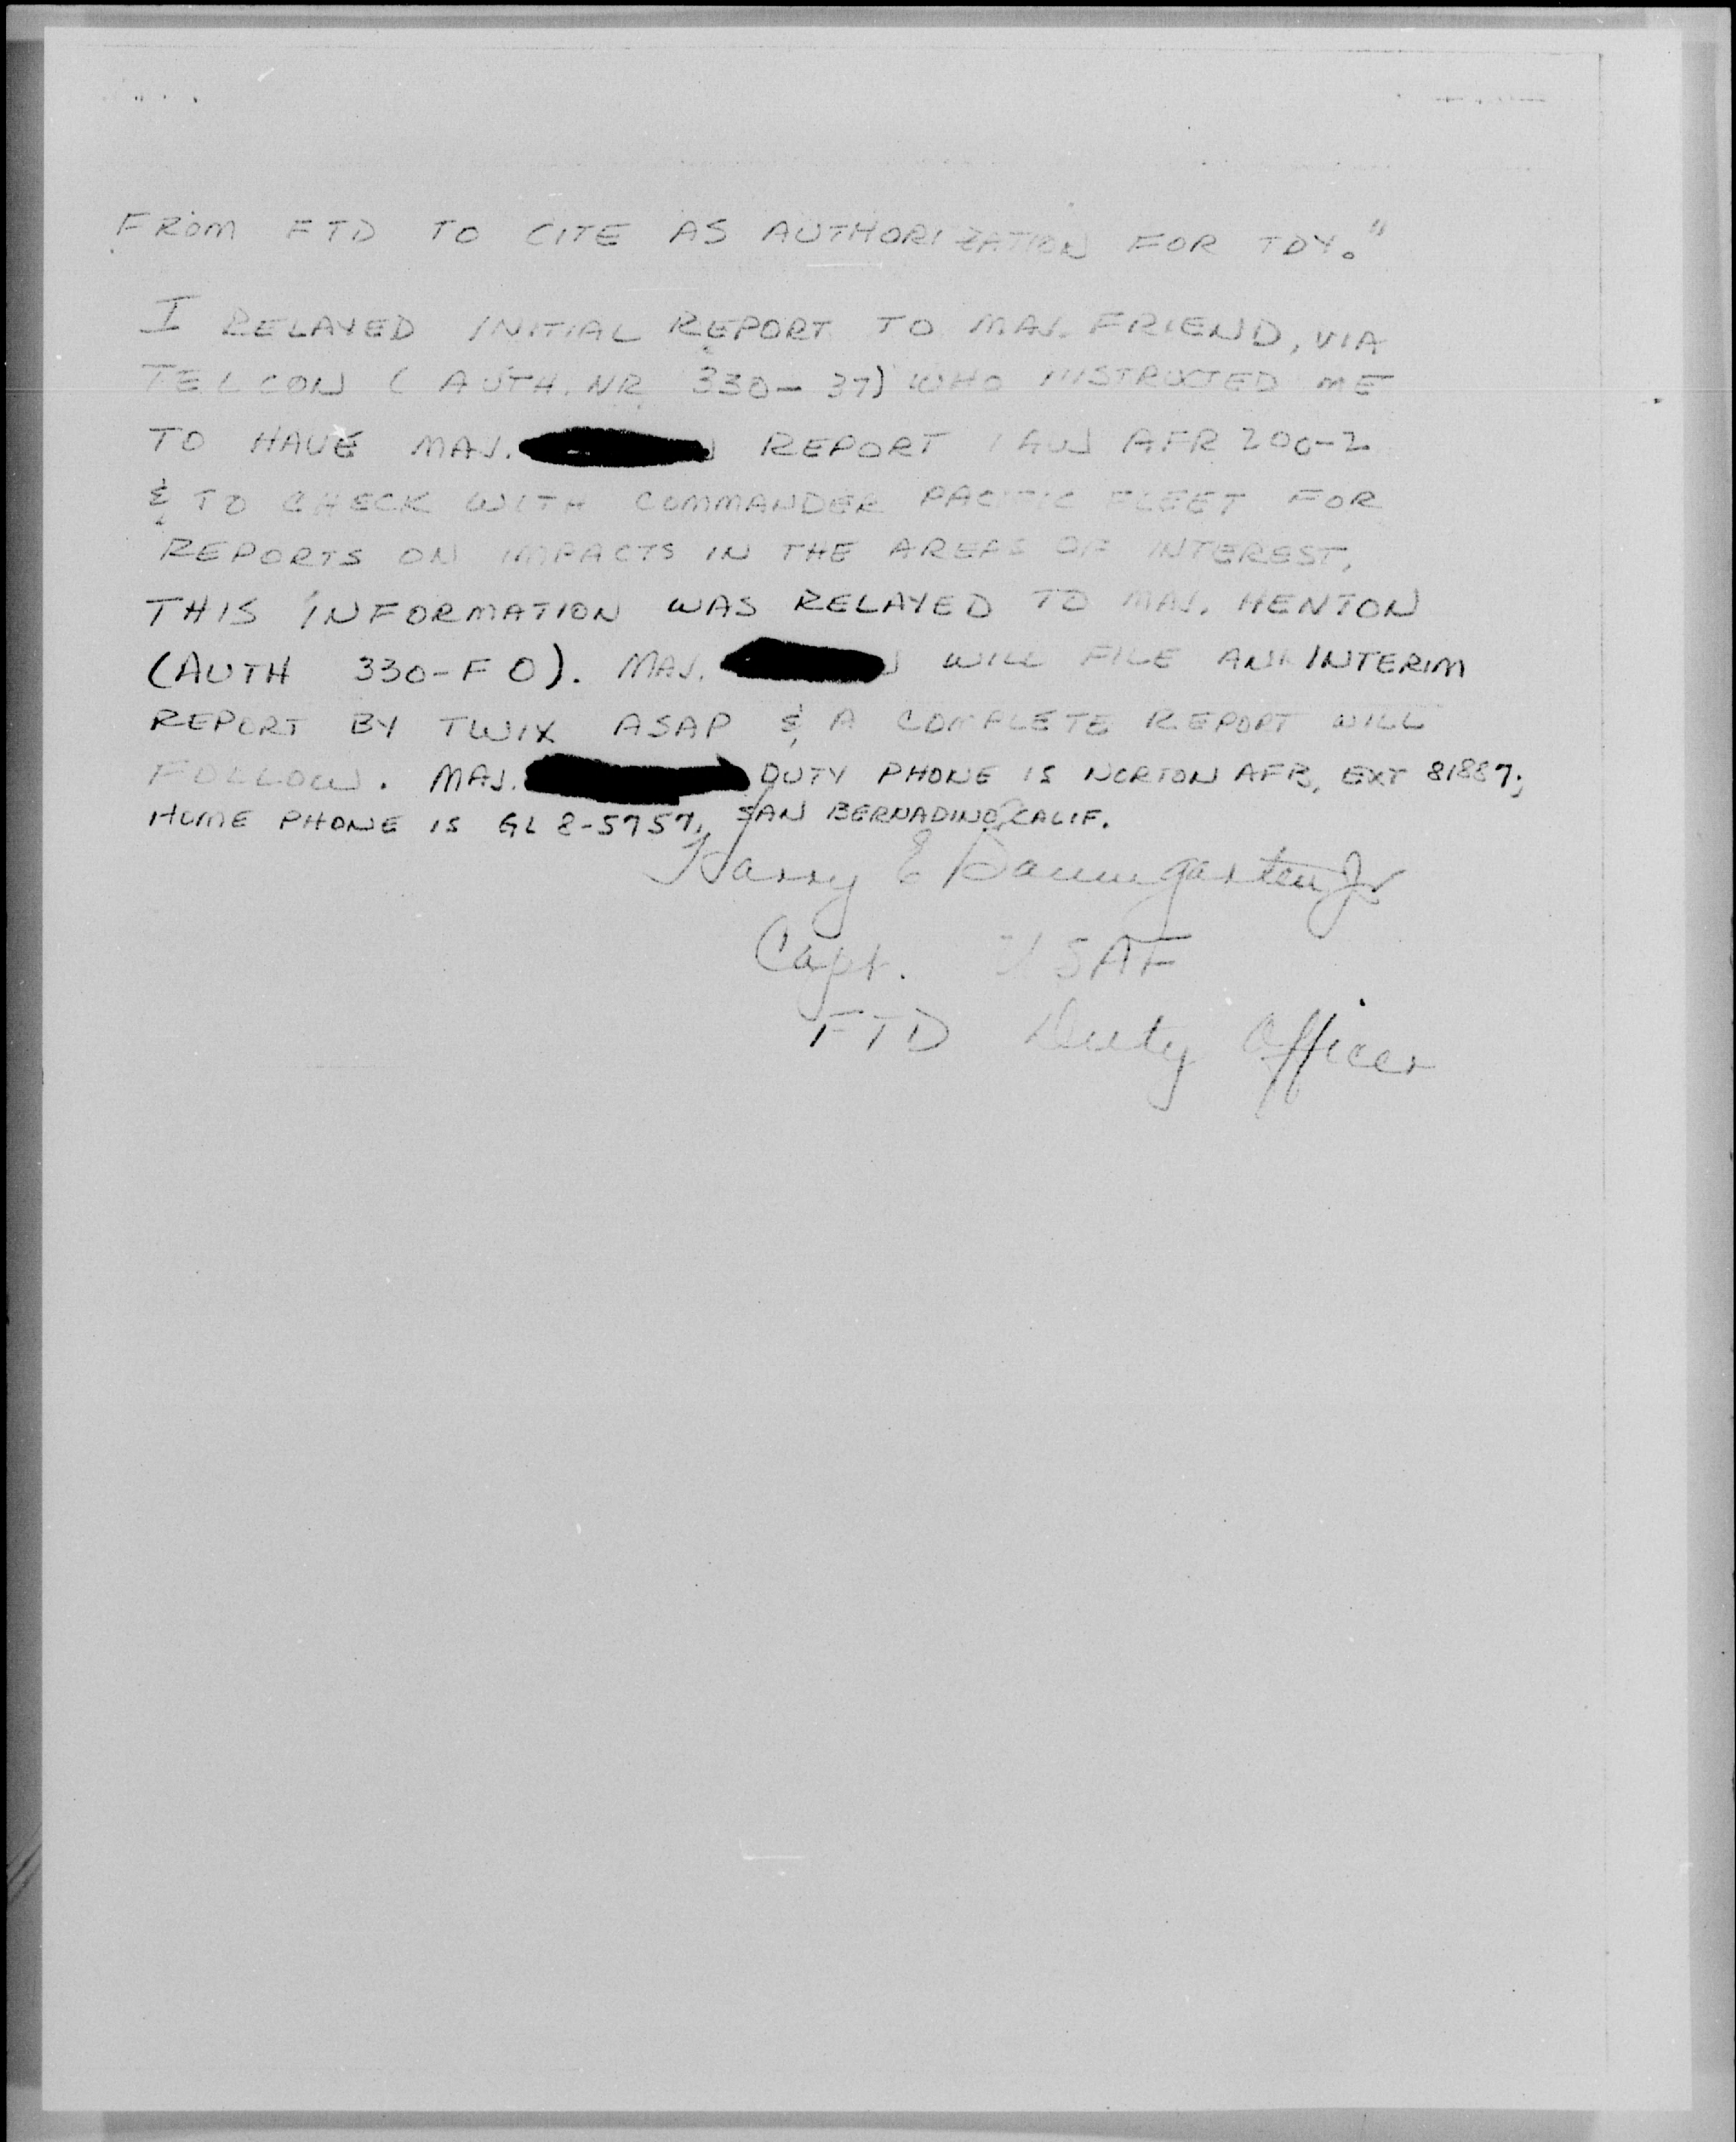 FROM FTD TO CITE AS AUTHORIZATION FOR TDY."
I RELAYED INITIAL REPORT TO MAJ. FRIEND, VIA
TELCON (AUTH. NR 330-37) WHO INSTRUCTED ME
TO HAVE MAJ. REPORT IAW AFR 200-2
& TO CHECK WITH COMMANDER PACIFIC FLEET FOR
REPORTS ON IMPACTS IN THE AREAS OF INTEREST.
THIS INFORMATION WAS RELAYED TO MAJ. HENTON
(AUTH 330-FO). MAJ. WILL FILE AN INTERIM
REPORT BY TWIX ASAP & A COMPLETE REPORT WILL
FOLLOW. MAJ. DUTY PHONE IS NORTON AFB, EXT 81887;
HOME PHONE IS GL 8-5757, SAN BERNADINO, CALIF.
Harry E Baumgarten Jr
Capt. USAF
FTD Duty Officer